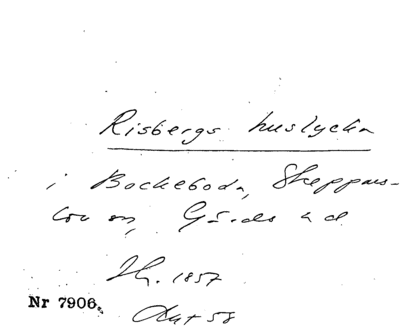 Risbergs huslycka
i Bockeboda, Skeppars-
lövs sn, Gärds hd
1857
Nr 7906.
58